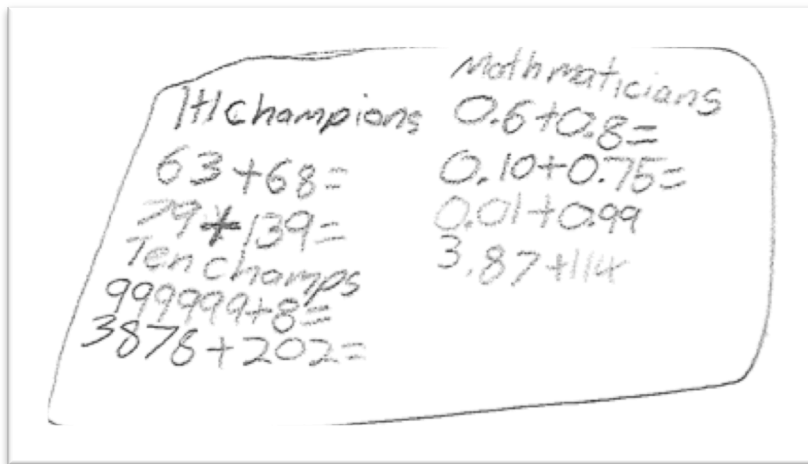 1+1 champions
63+68=
79+139=
Ten champs
999999+8=
3878+202=
Mathmaticians
0.6+0.8=
0.10+0.75=
0.01+0.99
3.87+114